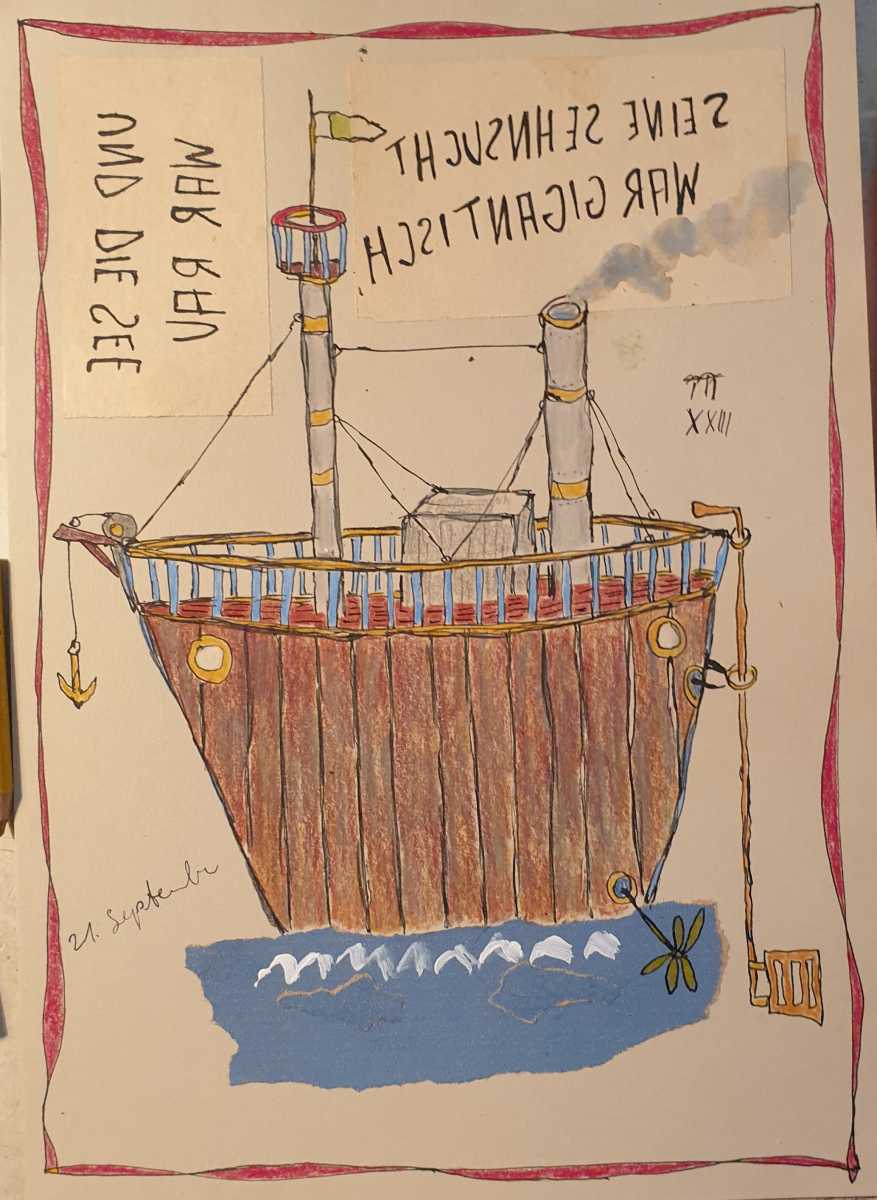 SEINE SEHNSUCHT
WAR GIGANTISCH
UND DIE SEE
WAR RAU
XXIII
21. September